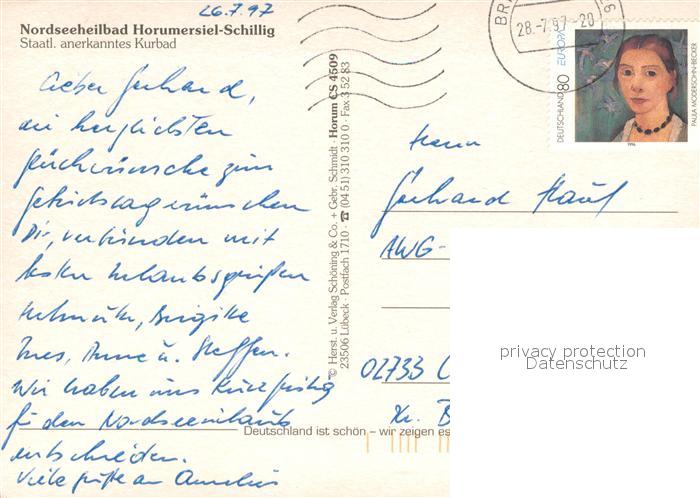 26.7.97
Nordseeheilbad Horumersiel-Schillig
Staatl. anerkanntes Kurbad
Lieber Gerhard,
die herzlichsten
Glückwünsche zum
Geburtstag wünschen
Dir, verbunden mit
besten Urlaubsgrüßen
Helmuth, Birgitte
Ines, Anne u. Steffen.
Wir haben uns kurzfristig
für den Nordseeurlaub
entschieden.
Viele Grüße an
© Herst. u. Verlag Schöning & Co. + Gebr. Schmidt · Horum CS 4509
23506 Lübeck · Postfach 1710 · ☎ (04 51) 310 310 0 · Fax 3 52 83
Deutschland ist schön – wir zeigen es
28.-7.97-20
DEUTSCHLAND 80 EUROPA
PAULA MODERSOHN-BECKER
1996
Herrn
Gerhard
AWG-
02733 C
Kr. B
privacy protection
Datenschutz